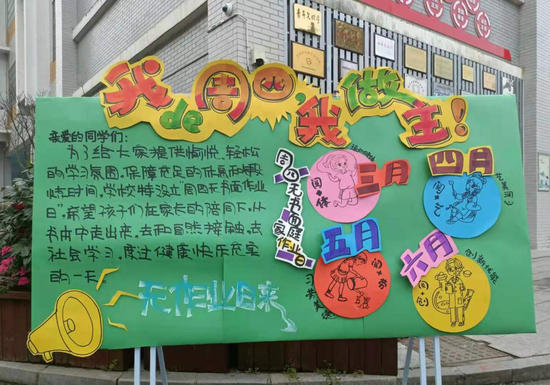 我de周四,我做主!
亲爱的同学们:
为了给大家提供愉悦、轻松
的学习氛围,保障充足的休息和锻
炼时间,学校特设立周四无书面作业
日",希望孩子们在家长的陪同下,从
书本中走出来,去和自然接触,去
社会学习,度过健康快乐充实
的一天
周四无书面家庭作业日
无作业日来
三月
四月
五月
六月